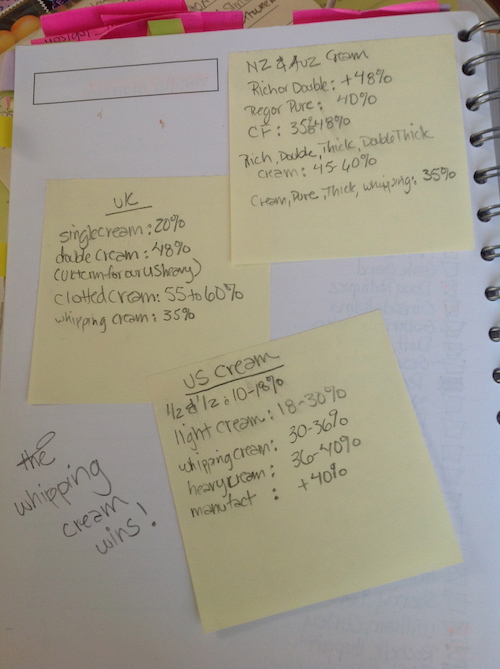 NZ & AUZ Cream
Rich or Double: +48%
Reg or Pure: 40%
CF: 35&48%
Rich, Double, Thick, Double Thick
cream: 45-60%
Cream, Pure, Thick, whipping: 35%
UK
single cream: 20%
double cream: 48%
(UK term for our US heavy)
clotted cream: 55 to 60%
whipping cream: 35%
US Cream
1/2 & 1/2: 10-18%
light cream: 18-30%
whipping cream: 30-36%
heavy cream: 36-40%
manufact : +40%
the
whipping
cream
wins!